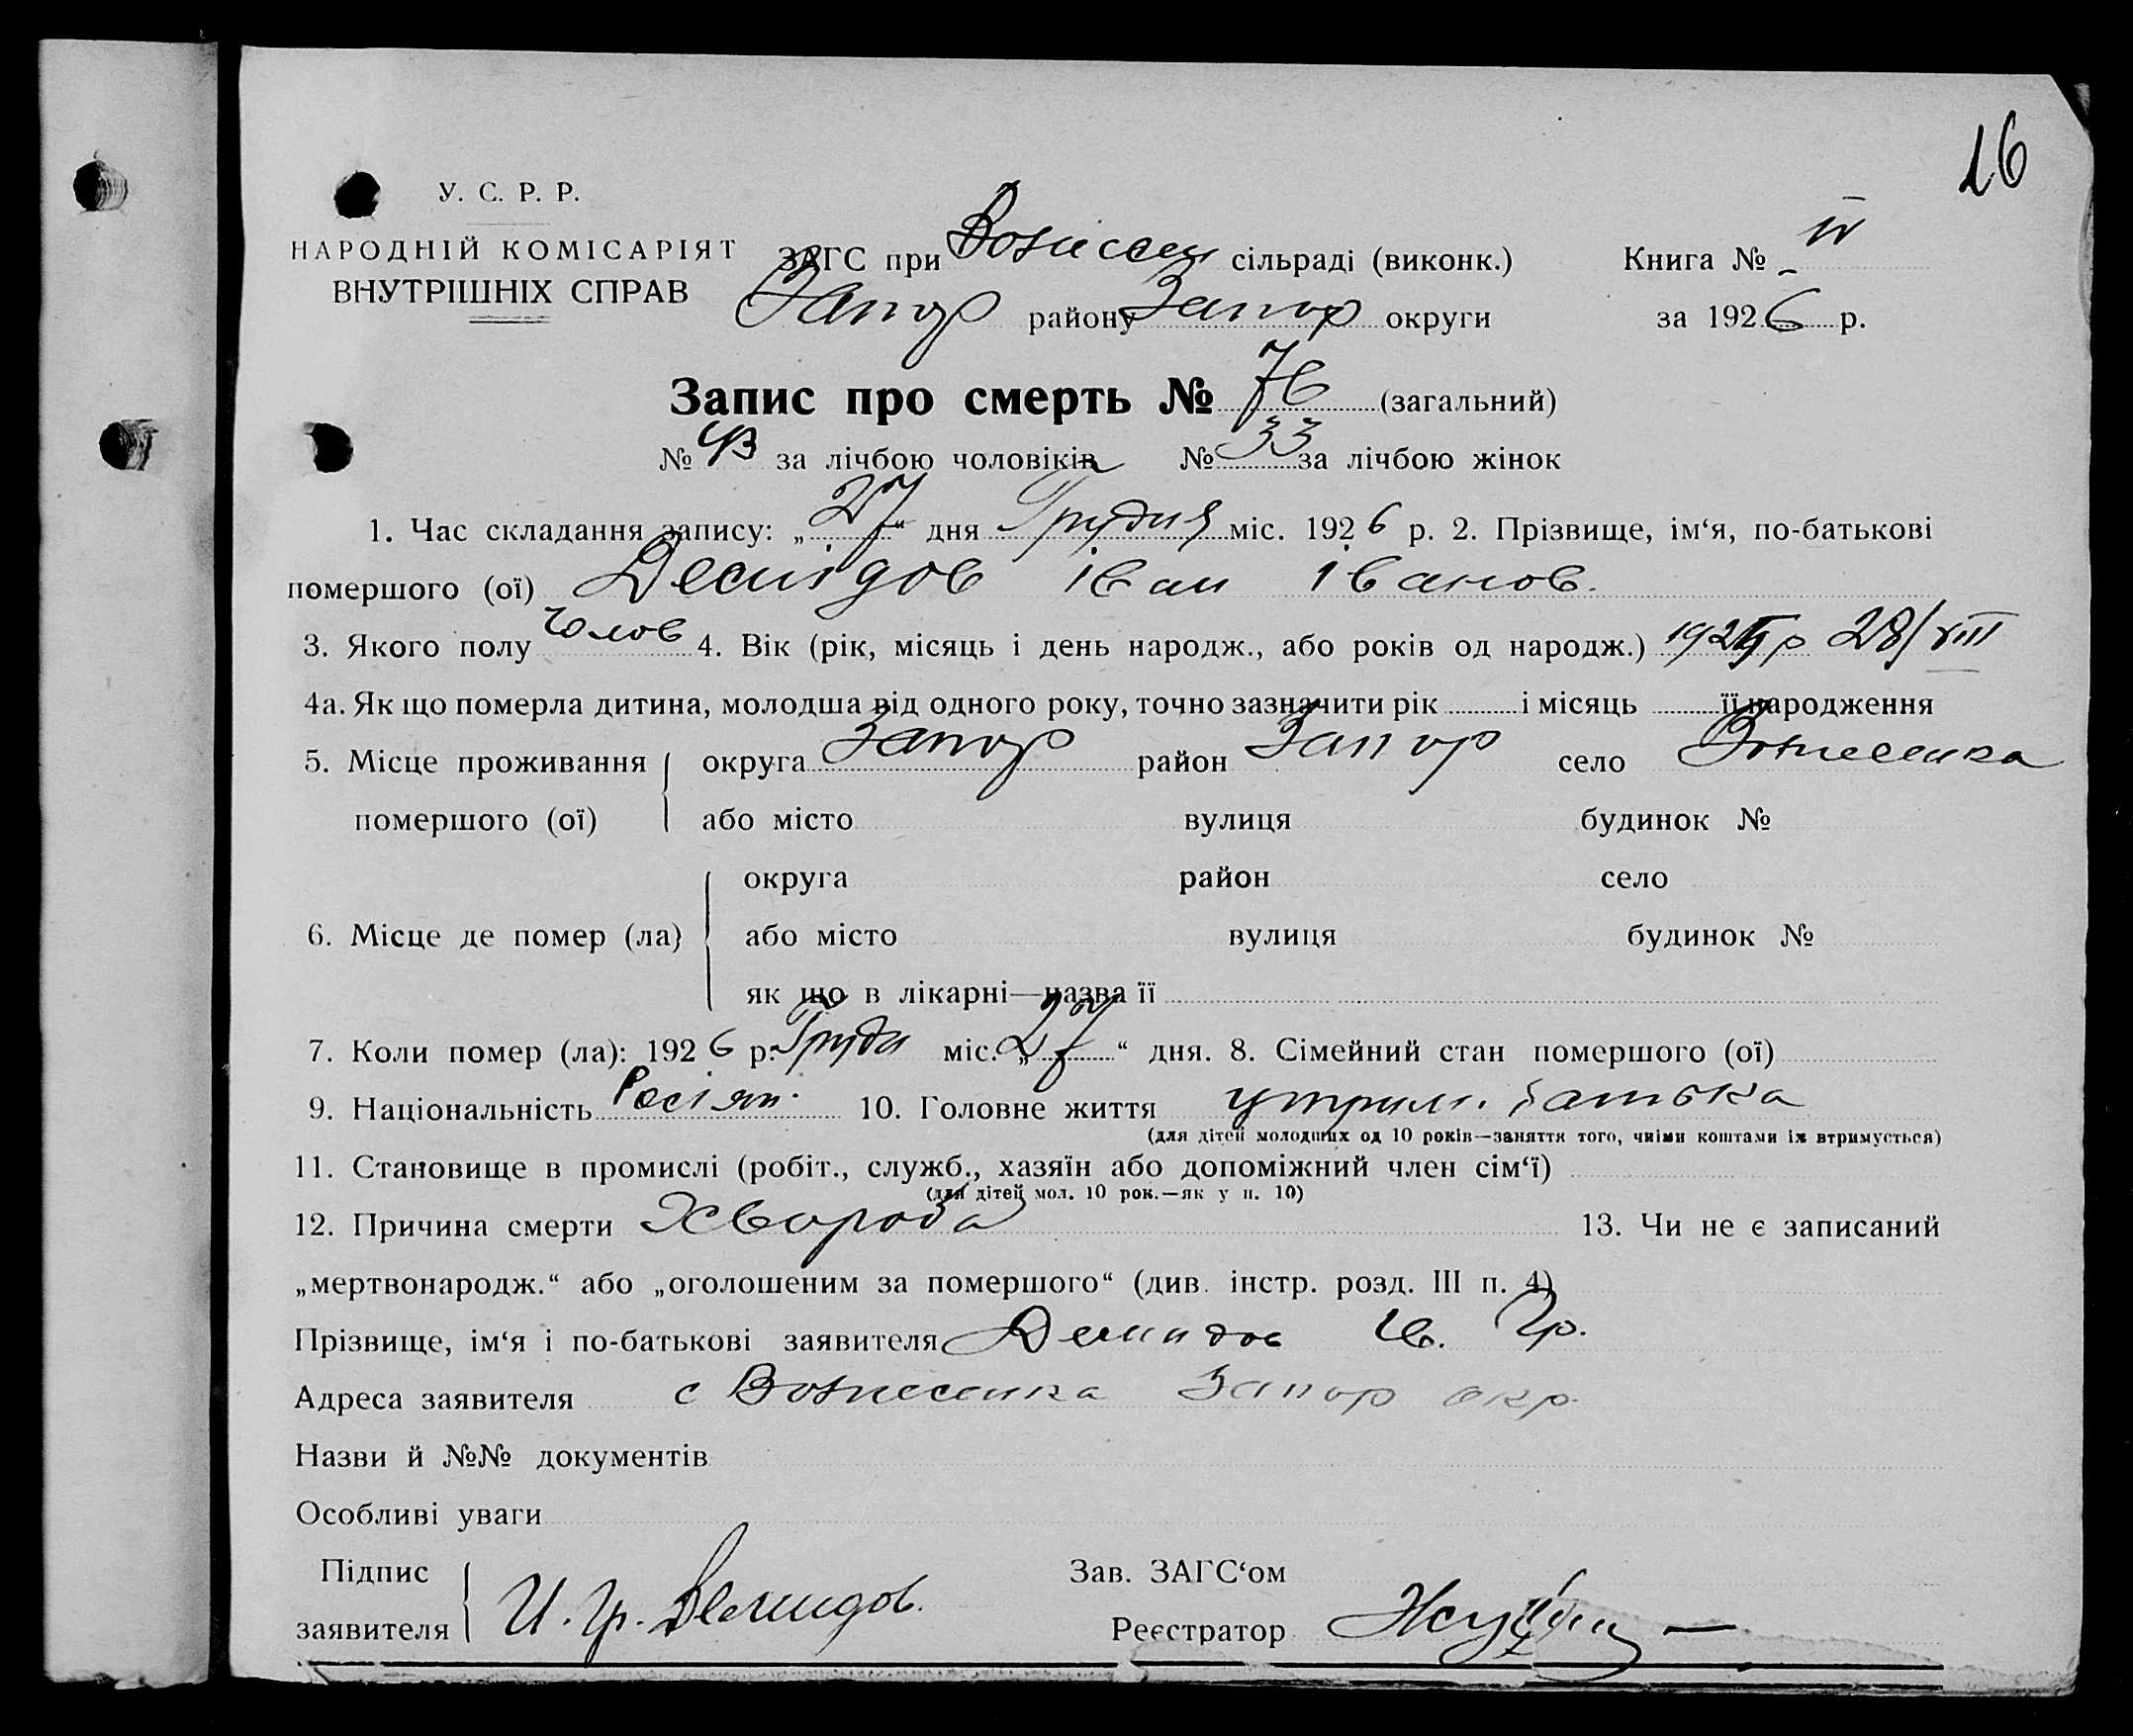 16
У. С. Р. Р.
НАРОДНІЙ КОМІСАРІЯТ
ВНУТРІШНІХ СПРАВ
ЗАГС при Вознесен сільраді (виконк.) Книга № IV
Запор району Запор округи за 1926 р.
Запис про смерть № 76 (загальний)
№ 43 за лічбою чоловіків № 33 за лічбою жінок
1. Час складання запису: „27“ дня Грудня міс. 1926 р. 2. Прізвище, ім‘я, по-батькові
помершого (ої) Демідов Іван Іванов.
3. Якого полу Чолов 4. Вік (рік, місяць і день народж., або років од народж.) р 28/VIII
4а. Як що померла дитина, молодша від одного року, точно зазначити рік і місяць її народження
5. Місце проживання округа Запор район Запор село Вознесенка
помершого (ої) або місто вулиця будинок №
округа район село
6. Місце де помер (ла) або місто вулиця будинок №
як що в лікарні—назва її
7. Коли помер (ла): 1926 р. Грудн міс. „27“ дня. 8. Сімейний стан помершого (ої)
9. Національність Росіян. 10. Головне життя утрим. батька
(для дітей молодших од 10 років—заняття того, чиїми коштами їх втримується)
11. Становище в промислі (робіт., служб., хазяїн або допоміжний член сім‘ї)
(для дітей мол. 10 рок.—як у п. 10)
12. Причина смерти Хвороба 13. Чи не є записаний
„мертвонародж.“ або „оголошеним за помершого“ (див. інстр. розд. III п. 4)
Прізвище, ім‘я і по-батькові заявителя Демидов Ив. Гр.
Адреса заявителя с Вознесенка Запор окр.
Назви й №№ документів
Особливі уваги
Підпис Зав. ЗАГС‘ом
заявителя И. Гр. Демидов. Реєстратор